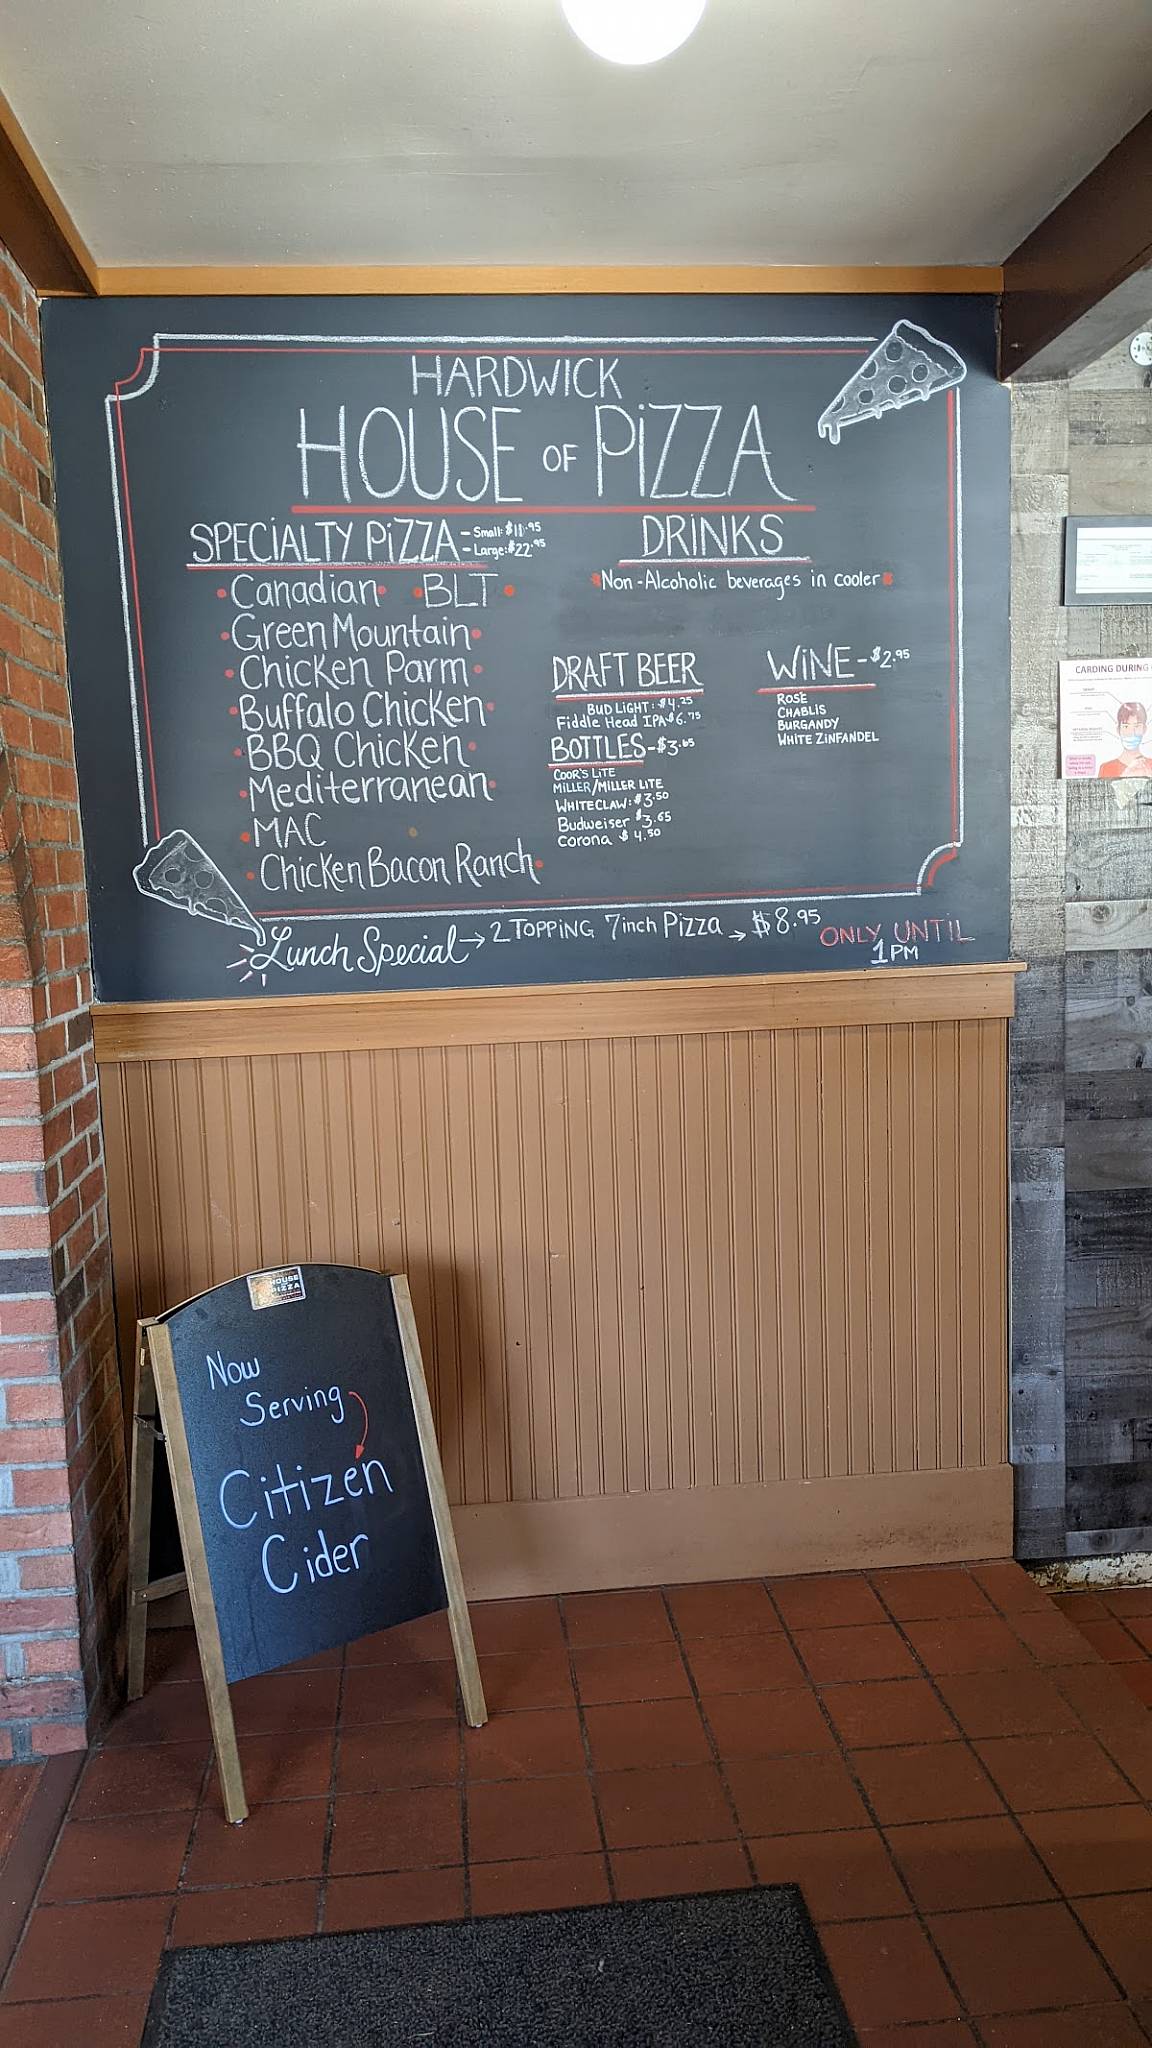 HARDWICK
HOUSE OF PiZZA
SPECiALTY PiZZA - Small: $11.95
- Large: $22.95
• Canadian • • BLT •
• Green Mountain •
• Chicken Parm •
• Buffalo Chicken •
• BBQ Chicken •
• Mediterranean •
• MAC •
• Chicken Bacon Ranch •
DRiNKS
Non-Alcoholic beverages in cooler
DRAFT BEER
BUD LIGHT: $4.25
Fiddle Head IPA $6.75
BOTTLES - $3.65
COOR'S LITE
MILLER/MILLER LITE
WHITECLAW: $3.50
Budweiser $3.65
Corona $4.50
WiNE - $2.95
ROSE
CHABLIS
BURGANDY
WHITE ZINFANDEL
Lunch Special → 2 TOPPING 7inch Pizza → $8.95 ONLY UNTIL
1PM
CARDING DURING
HOUSE
PIZZA
Now
Serving
Citizen
Cider